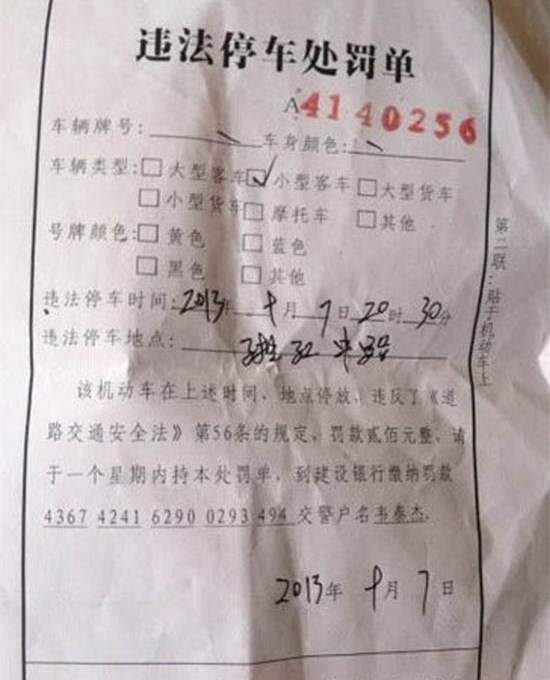 违法停车处罚单
A4140256
车辆牌号: 车身颜色:
车辆类型:□大型客车☑小型客车□大型货车
□小型货车□摩托车□其他
号牌颜色:□黄色□蓝色
□黑色□其他
违法停车时间:2013年十月7日20时30分
违法停车地点:
该机动车在上述时间、地点停放,违反了《道
路交通安全法》第56条的规定,罚款贰佰元整,请
于一个星期内持本处罚单,到建设银行缴纳罚款
4367 4241 6290 0293 494 交警户名韦泰杰.
2013年十月7日
第二联:贴于机动车上